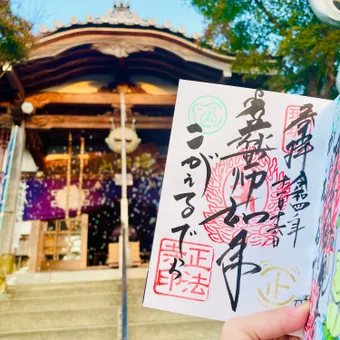 奉拝
令和四年
薬師如来
こがえるでら
正法
寺印